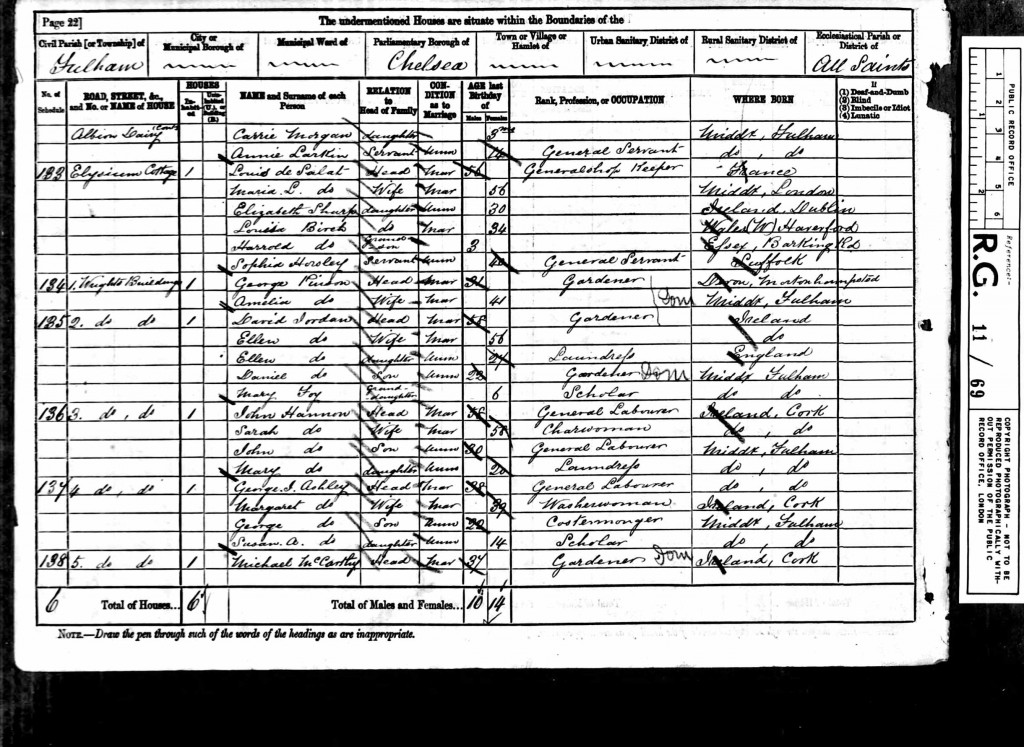 Page 22]
The undermentioned Houses are situate within the Boundaries of the
Civil Parish [or Township] of
City or Municipal Borough of
Municipal Ward of
Parliamentary Borough of
Town or Village or Hamlet of
Urban Sanitary District of
Rural Sanitary District of
Ecclesiastical Parish or District of
Fulham Chelsea All Saints
No. of Schedule
ROAD, STREET, &c., and No. or NAME of HOUSE
HOUSES
NAME and Surname of each Person
RELATION to Head of Family
CONDITION as to Marriage
AGE last Birthday of
Males Females
Rank, Profession, or OCCUPATION
WHERE BORN
If
(1) Deaf-and-Dumb
(2) Blind
(3) Imbecile or Idiot
(4) Lunatic
Albion Dairy Carrie Morgan daughter Middx, Fulham
Annie Larkin Servant Unm 14 General Servant do, do
133 Elysium Cottage 1 Louis de Salat Head Mar 56 Generalshop Keeper France
Maria L. do Wife Mar 56 Middx, London
Elizabeth Sharp daughter Unm 30 Ireland, Dublin
Louisa Birch do Mar 34 Wales (W) Haverford
Harrold do Grandson 3 Essex, Barking Rd
Sophia Horsley Servant Unm 40 General Servant Suffolk
134 1. Wrights Buildings 1 George Pinson Head Mar 31 Gardener Devon, Mortonhampsted
Amelia do Wife Mar 41 Dom Middx, Fulham
135 2. do do 1 David Jordan Head Mar 58 Gardener Ireland
Ellen do Wife Mar 56 do
Ellen do daughter Unm 27 Laundress England
Daniel do Son Unm 22 Gardener Dom Middx Fulham
Mary Foy Grand-daughter 6 Scholar do do
136 3. do, do 1 John Hannon Head Mar 58 General Labourer Ireland, Cork
Sarah do Wife Mar 58 Charwoman do, do
John do Son Unm 30 General Labourer Middx, Fulham
Mary do daughter Unm 20 Laundress do, do
137 4 do, do 1 George J. Ashley Head Mar 38 General Labourer do, do
Margaret do Wife Mar 39 Washerwoman Ireland, Cork
George do Son Unm 22 Costermonger Middx, Fulham
Susan. A. do daughter Unm 14 Scholar do, do
138 5. do do 1 Michael McCarthy Head Mar 37 Gardener Dom Ireland, Cork
6 Total of Houses... 6 Total of Males and Females... 10 14
NOTE.—Draw the pen through such of the words of the headings as are inappropriate.
PUBLIC RECORD OFFICE
1 2 3 4 5 6
1 2
Reference:-
R.G. 11 / 69
COPYRIGHT PHOTOGRAPH - NOT TO BE REPRODUCED PHOTOGRAPHICALLY WITHOUT PERMISSION OF THE PUBLIC RECORD OFFICE, LONDON